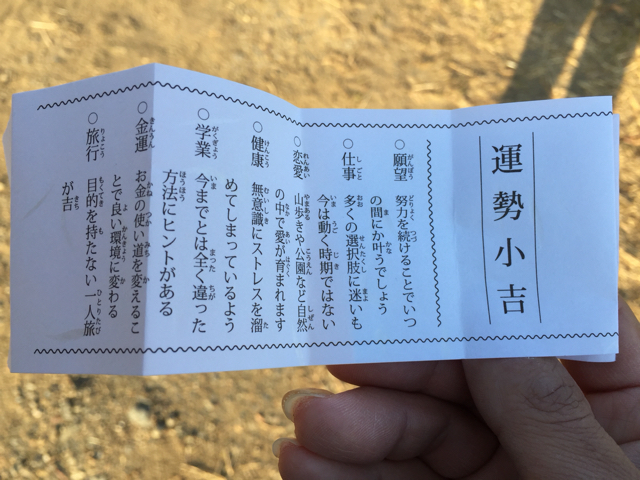 運勢小吉
○ 願望 努力を続けることでいつ
の間にか叶うでしょう
○ 仕事 多くの選択肢に迷いも
今は動く時期ではない
○ 恋愛 山歩きや公園など自然
の中で愛が育まれます
○ 健康 無意識にストレスを溜
めてしまっているよう
○ 学業 今までとは全く違った
方法にヒントがある
○ 金運 お金の使い道を変えるこ
とで良い環境に変わる
○ 旅行 目的を持たない一人旅
が吉